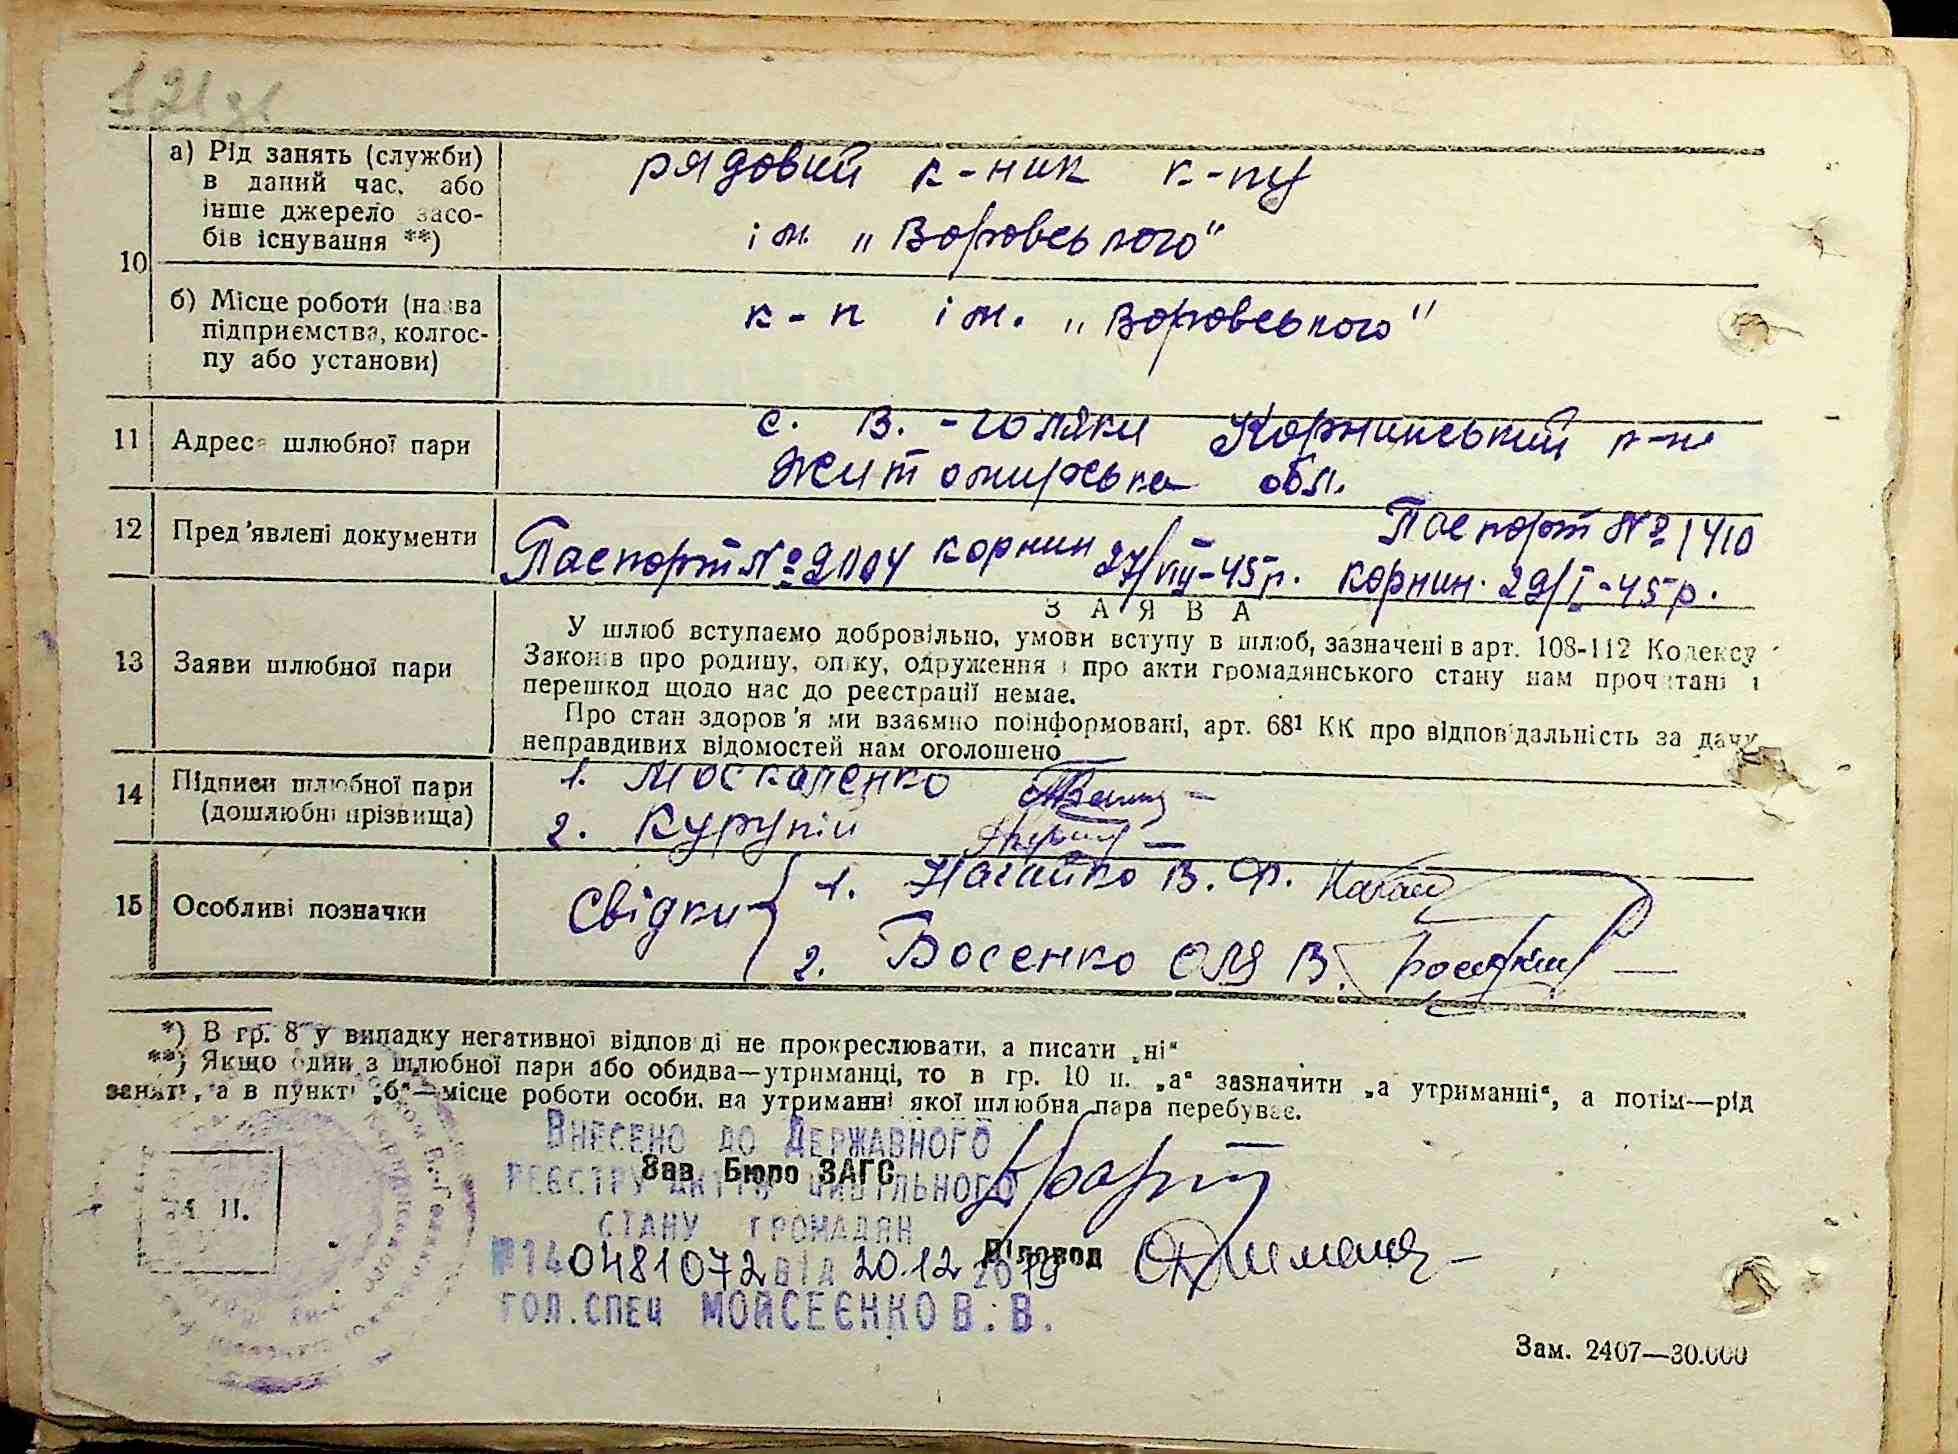 а) Рід занять (служби)
в даний час, або
інше джерело засо-
бів існування **)
рядовий к-ник к-пу
ім. „Воровського"
10
б) Місце роботи (назва
підприємства, колгос-
пу або установи)
к-п ім. „Воровського"
11 Адреса шлюбної пари
с. В.-Голяки Корнинський р-н
Житомирська обл.
12 Пред'явлені документи
Паспорт №1410
Паспорт №2004 Корнин 27/VIII-45р. Корнин. 29/I-45р.
ЗАЯВА
13 Заяви шлюбної пари
У шлюб вступаємо добровільно, умови вступу в шлюб, зазначені в арт. 108-112 Кодексу
Законів про родину, опіку, одруження і про акти громадянського стану нам прочитані і
перешкод щодо нас до реєстрації немає.
Про стан здоров'я ми взаємно поінформовані, арт. 68¹ КК про відповідальність за дачу
неправдивих відомостей нам оголошено
14 Підписи шлюбної пари
(дошлюбні прізвища)
1. Москаленко
2. Курупій
15 Особливі позначки
Свідки
1. Нагайко В. Ф.
2. Босенко В.
*) В гр. 8 у випадку негативної відповіді не прокреслювати, а писати „ні"
**) Якщо один з шлюбної пари або обидва—утриманці, то в гр. 10 п. „а" зазначити „а утриманні", а потім—рід
занять, а в пункті „б"—місце роботи особи, на утриманні якої шлюбна пара перебуває.
Внесено до Державного
Зав. Бюро ЗАГС
реєстру актів цивільного
стану громадян
М. П.
Діловод
№140481072 від 20.12 2019
гол. спец Мойсеєнко В. В.
Зам. 2407—30.000